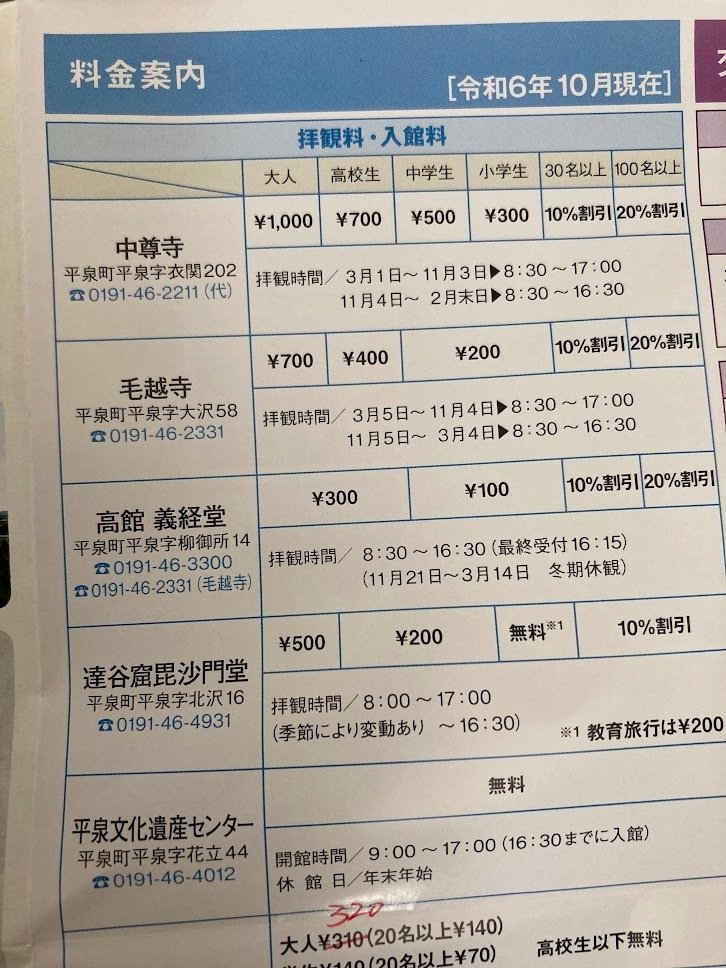 料金案内
[令和6年10月現在]
拝観料・入館料
大人 高校生 中学生 小学生 30名以上 100名以上
中尊寺
平泉町平泉字衣関202
☎0191-46-2211(代)
¥1,000 ¥700 ¥500 ¥300 10%割引 20%割引
拝観時間/3月1日〜11月3日▶8:30〜17:00
11月4日〜 2月末日▶8:30〜16:30
毛越寺
平泉町平泉字大沢58
☎0191-46-2331
¥700 ¥400 ¥200 10%割引 20%割引
拝観時間/3月5日〜11月4日▶8:30〜17:00
11月5日〜 3月4日▶8:30〜16:30
高館 義経堂
平泉町平泉字柳御所14
☎0191-46-3300
☎0191-46-2331(毛越寺)
¥300 ¥100 10%割引 20%割引
拝観時間/ 8:30〜16:30(最終受付16:15)
(11月21日〜3月14日 冬期休観)
達谷窟毘沙門堂
平泉町平泉字北沢16
☎0191-46-4931
¥500 ¥200 無料※1 10%割引
拝観時間/8:00〜17:00
(季節により変動あり 〜16:30)
※1 教育旅行は¥200
平泉文化遺産センター
平泉町平泉字花立44
☎0191-46-4012
無料
開館時間/9:00〜17:00(16:30までに入館)
休館日/年末年始
320
大人¥310(20名以上¥140)
学生¥140(20名以上¥70)
高校生以下無料